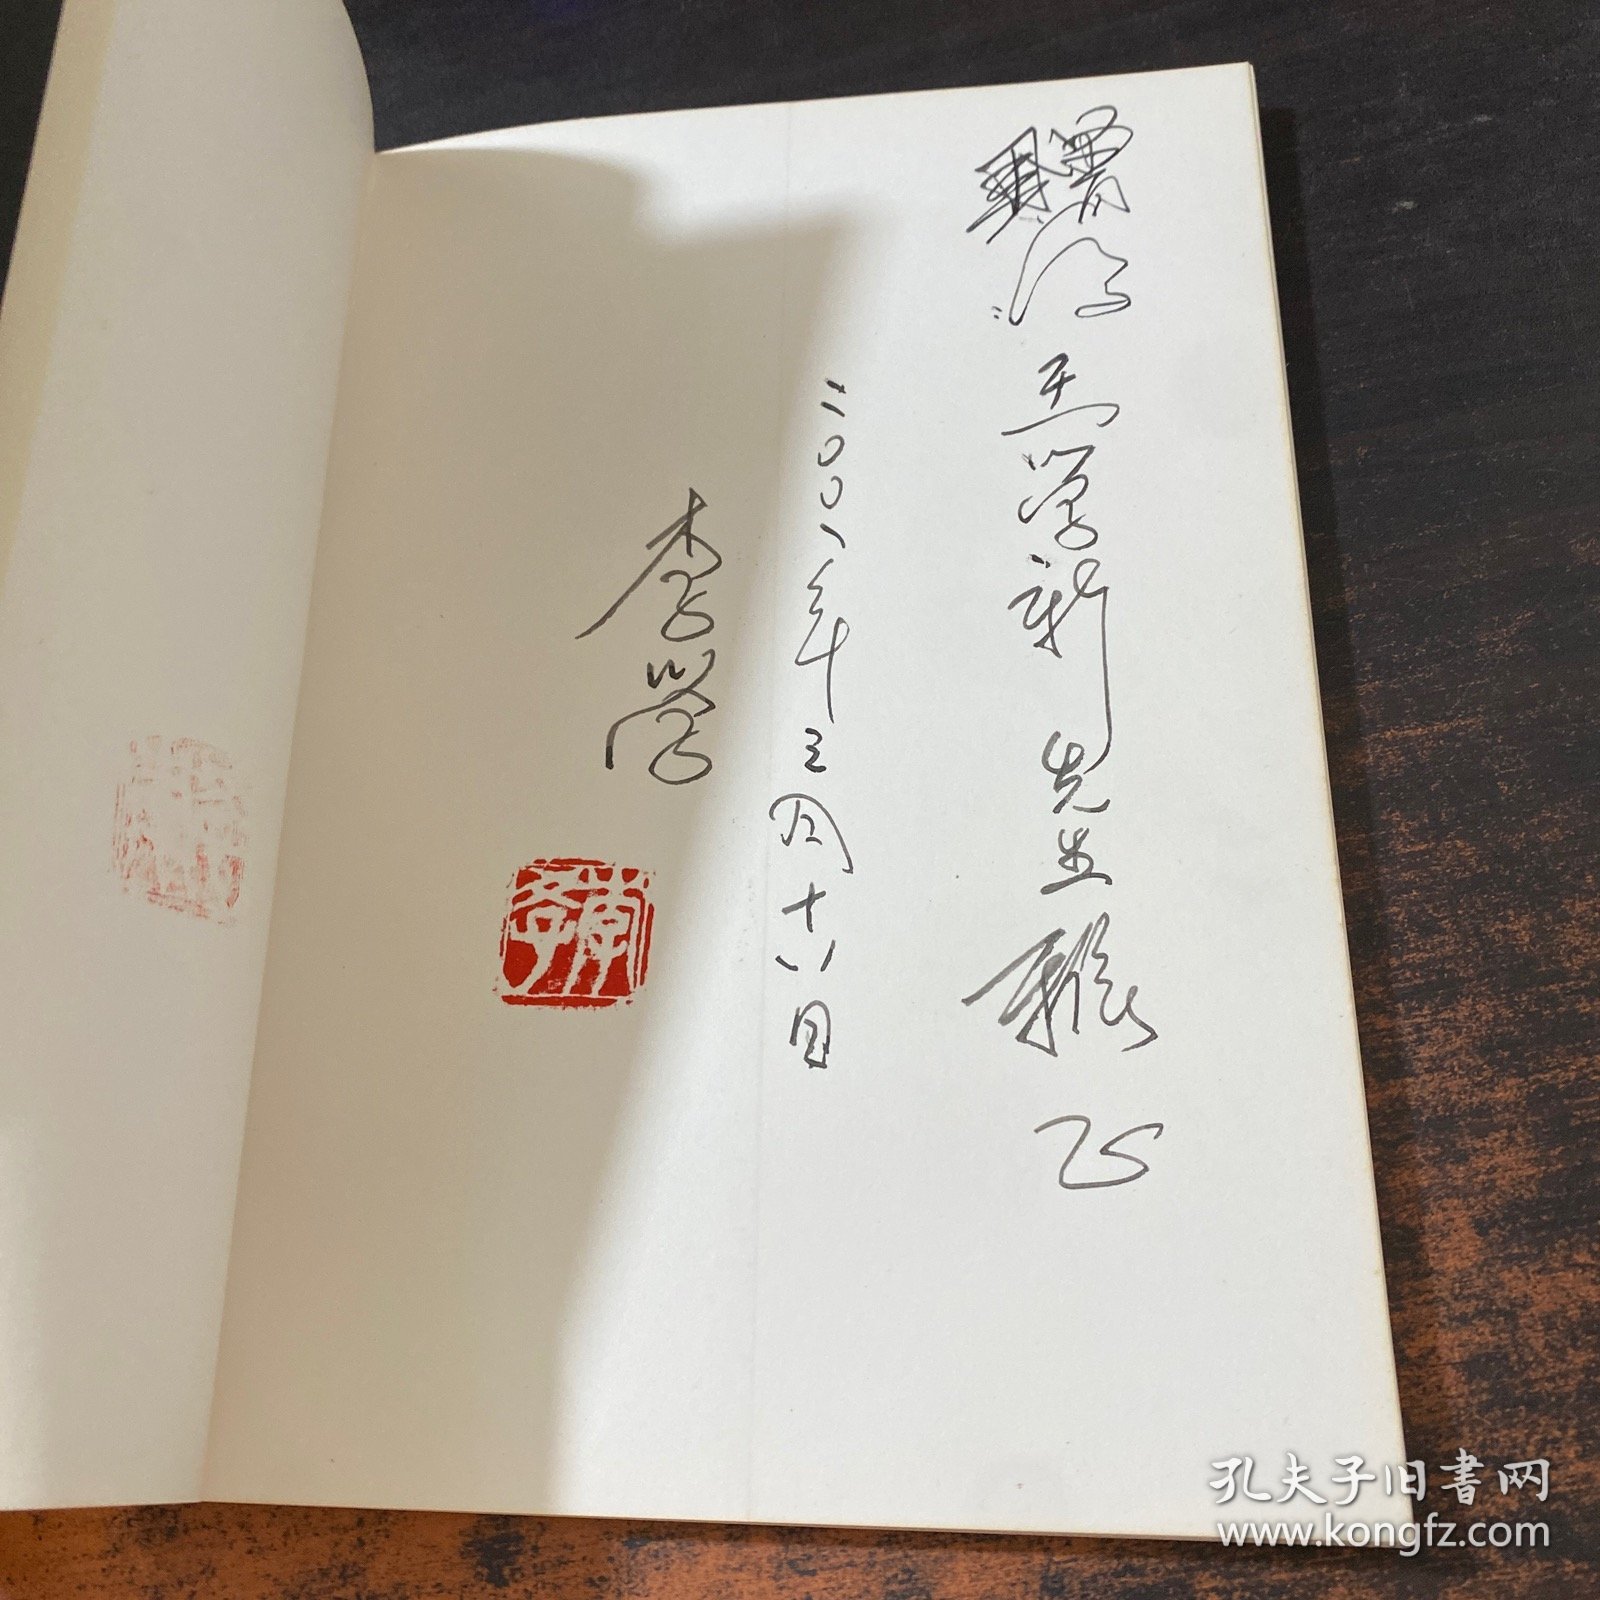 赠给
王学新先生雅正
二〇〇一年三月十八日
李学
孔夫子旧书网
www.kongfz.com